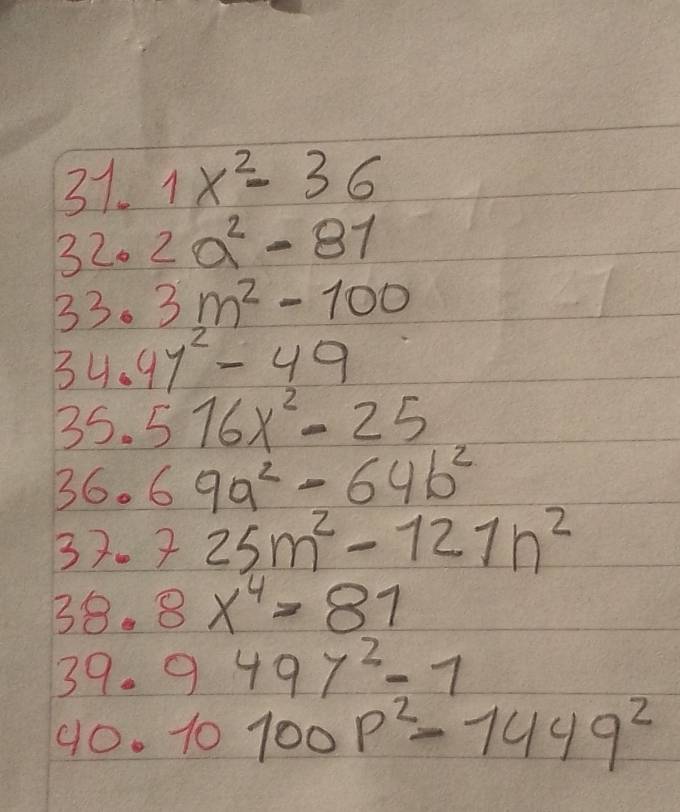 31. 1 x² - 36
32. 2 a² - 81
33. 3 m² - 100
34. 4 y² - 49
35. 5 16x² - 25
36. 6 9a² - 64b²
37. 7 25m² - 121n²
38. 8 x⁴ - 81
39. 9 49y² - 1
40. 10 100p² - 144q²